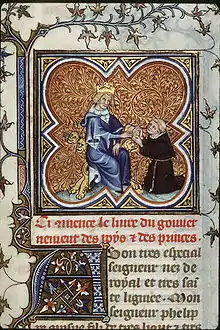 Ci mence le livre du gouver
nement des roys & des princes.
A Son tres especial
seigneur nez de
royal et tres sain
te lignee. Mon
seigneur phelip